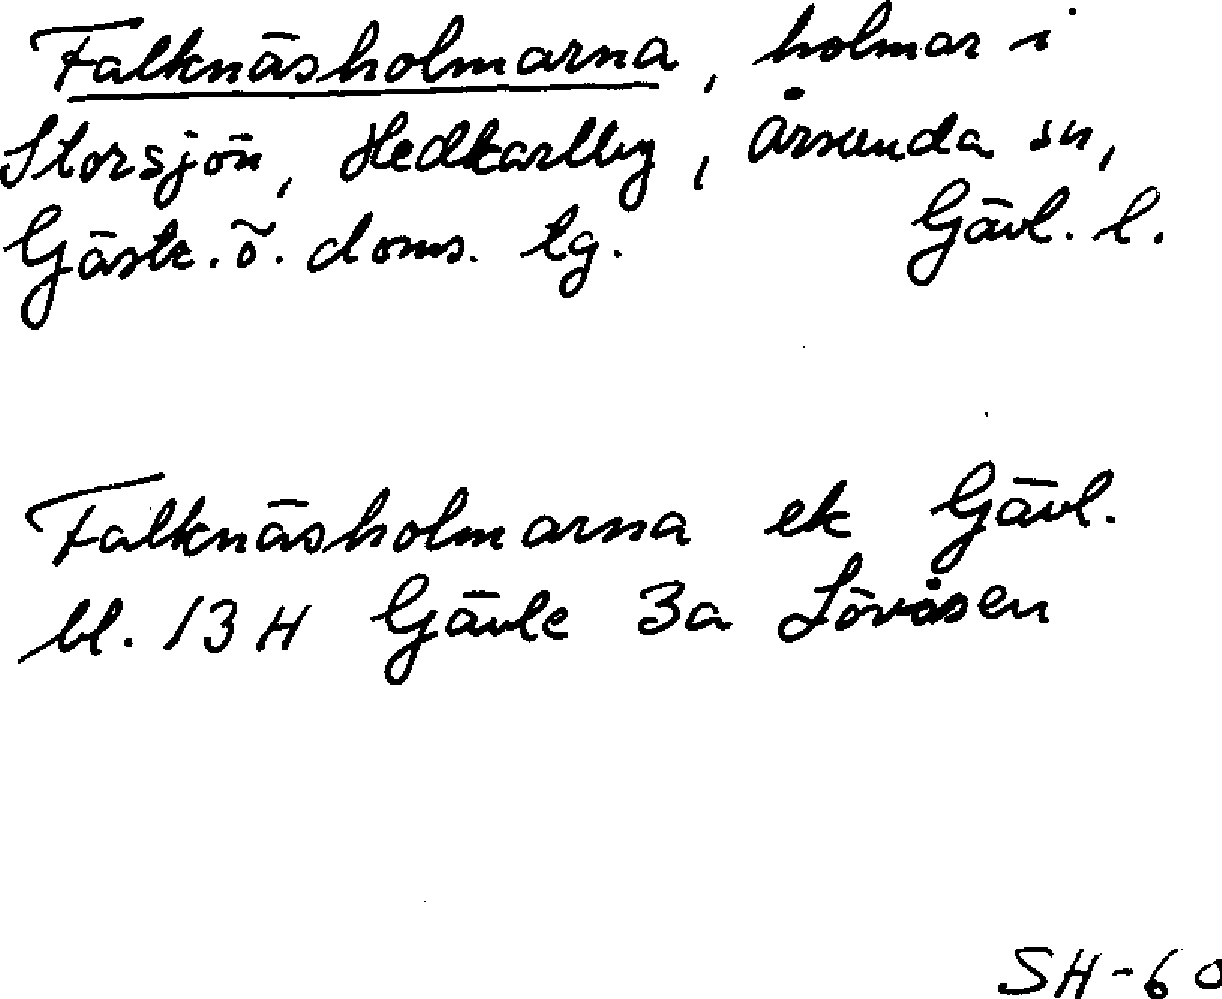 Falknäsholmarna, holmar i
Storsjön, Hedkarlby, Årsunda sn,
Gästr. ö. doms. tg. Gävl. l.
Falknäsholmarna ek Gävl.
bl. 13 H Gävle 3a Lövåsen
SH-60